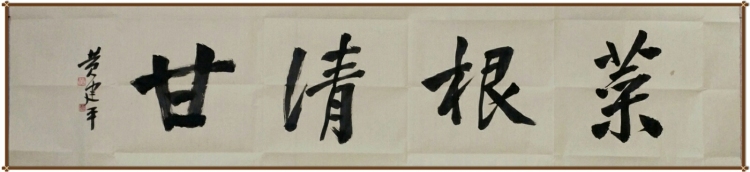 菜根清甘
黄建平